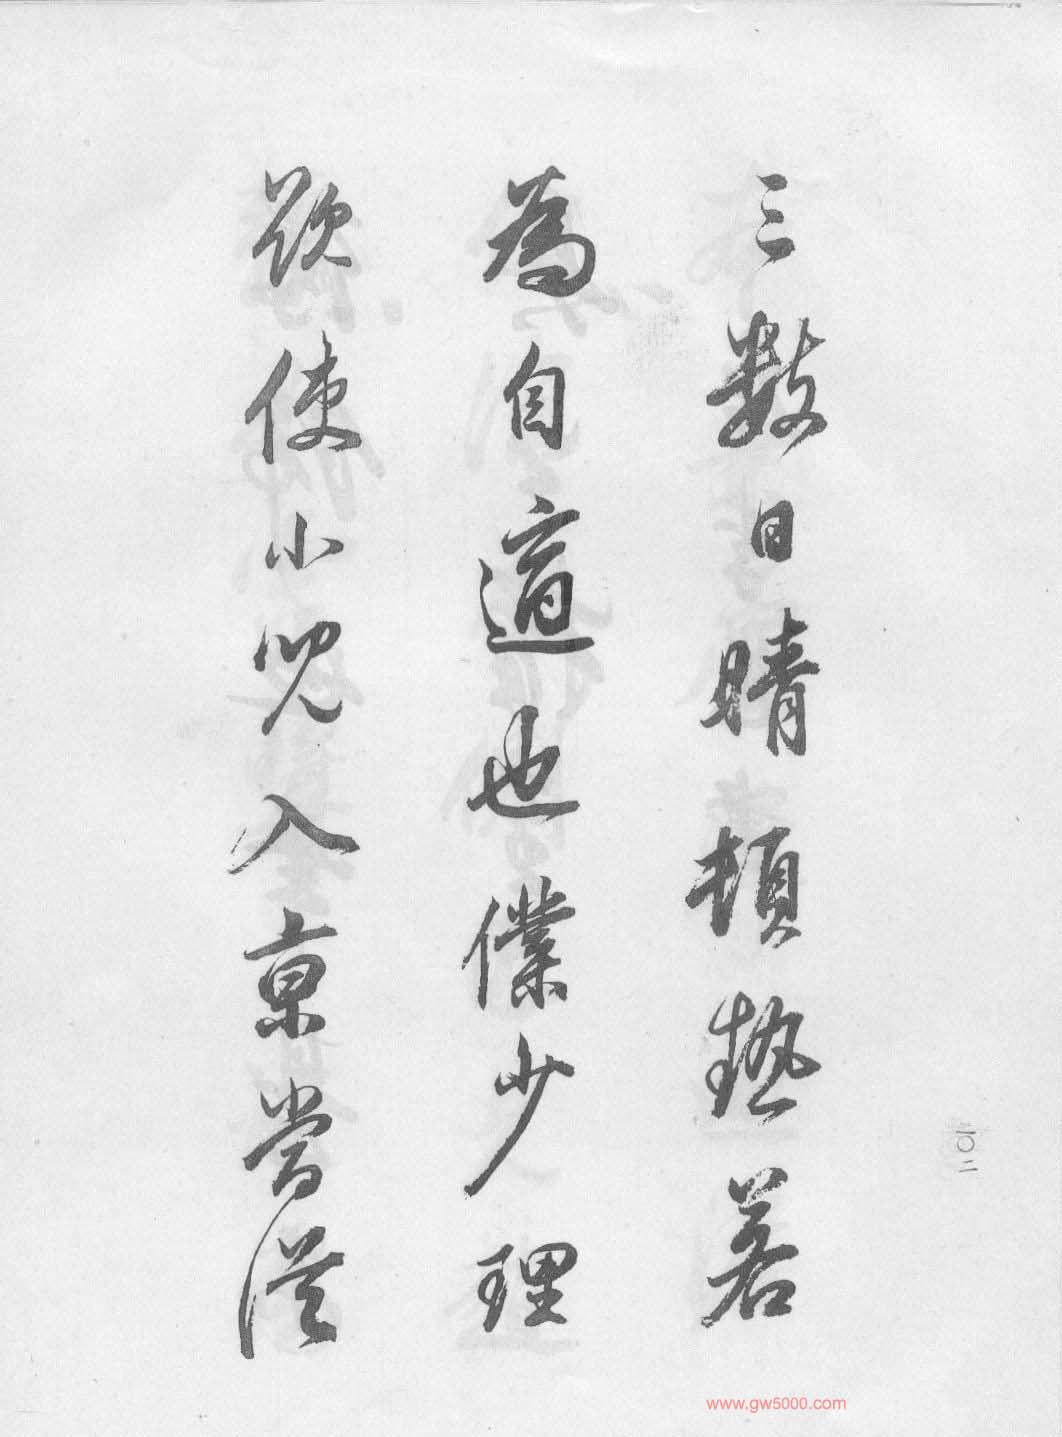 三數日晴頓熱若
為自適也僕少理
欲使小兒入京當從
一〇二
www.gw5000.com